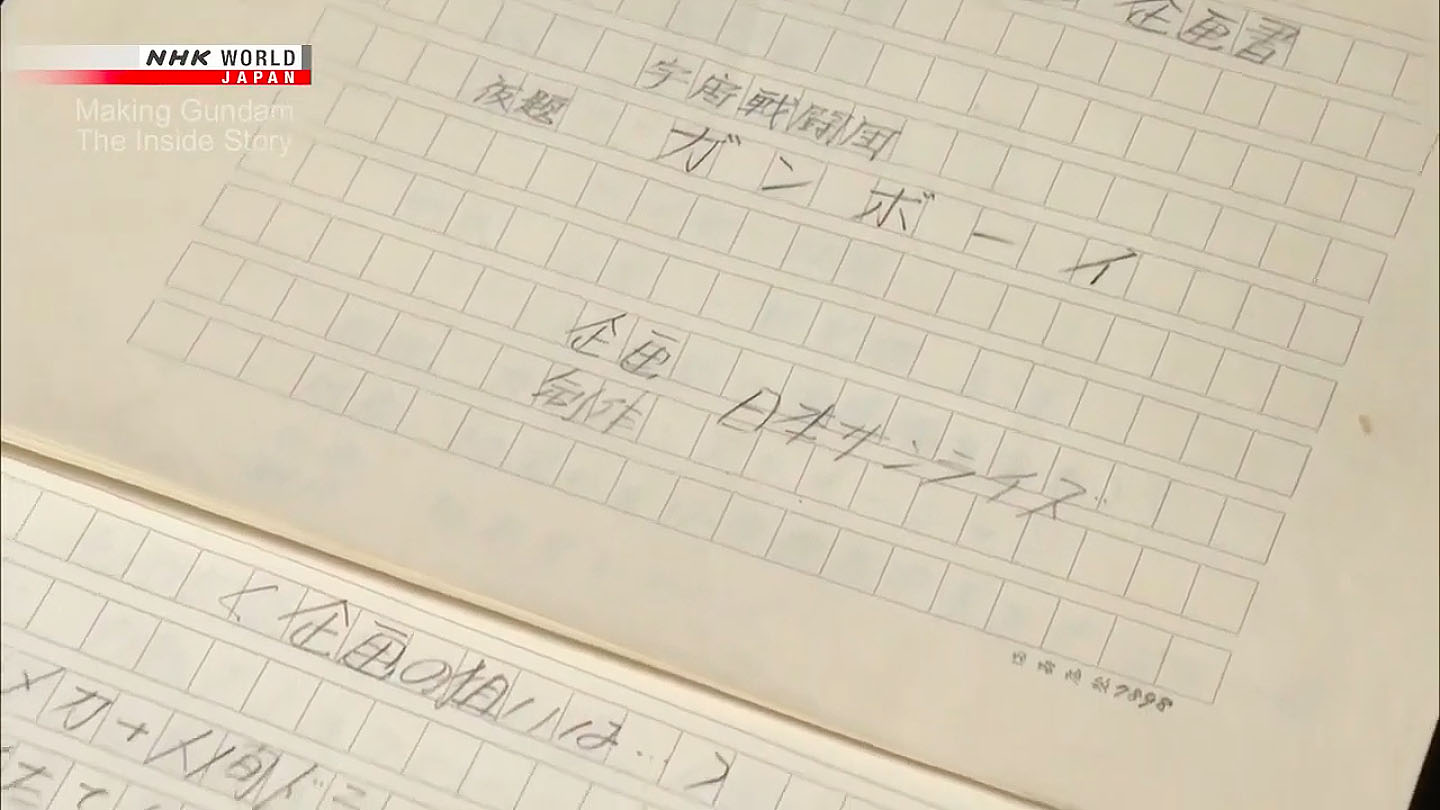 NHK WORLD
JAPAN
Making Gundam
The Inside Story
企画書
宇宙戦闘団
仮題 ガンボーイ
企画
制作 日本サンライズ
＜企画の狙いは…＞
メカ＋人間ドラ